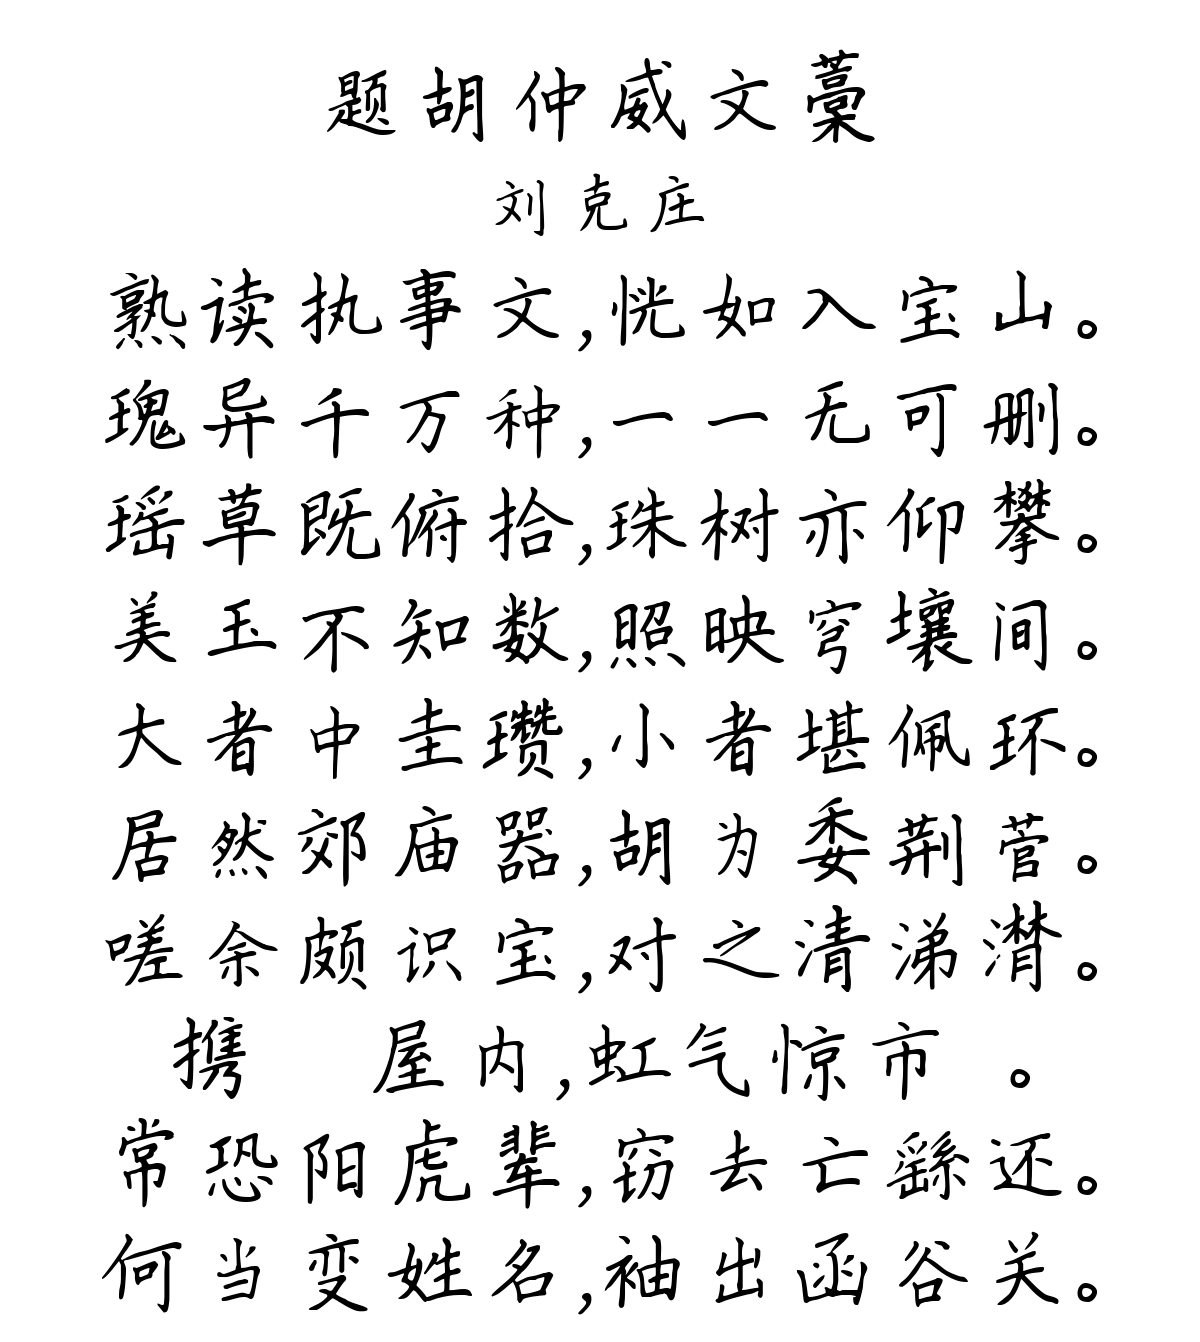 题胡仲威文藁
刘克庄
熟读执事文,恍如入宝山。
瑰异千万种,一一无可删。
瑶草既俯拾,珠树亦仰攀。
美玉不知数,照映穹壤间。
大者中圭瓒,小者堪佩环。
居然郊庙器,胡为委荆菅。
嗟余颇识宝,对之清涕潸。
携 屋内,虹气惊市 。
常恐阳虎辈,窃去亡繇还。
何当变姓名,袖出函谷关。